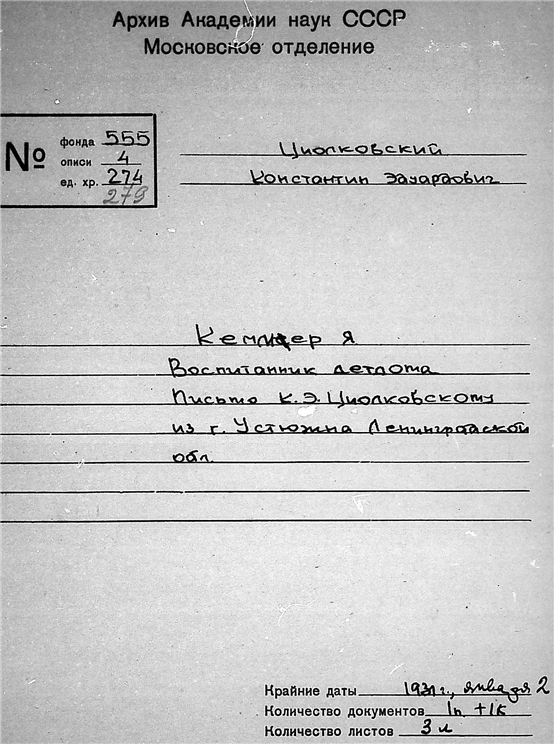 Архив Академии наук СССР
Московское отделение
№
фонда 555
описи 4
ед. хр. 274
279
Циолковский
Константин Эдуардович
Я
Воспитанник детдома
Письмо К.Э. Циолковскому
из г. Устюжна Ленинградской
обл.
Крайние даты г., января 2
Количество документов 1п. +1к
Количество листов 3 л